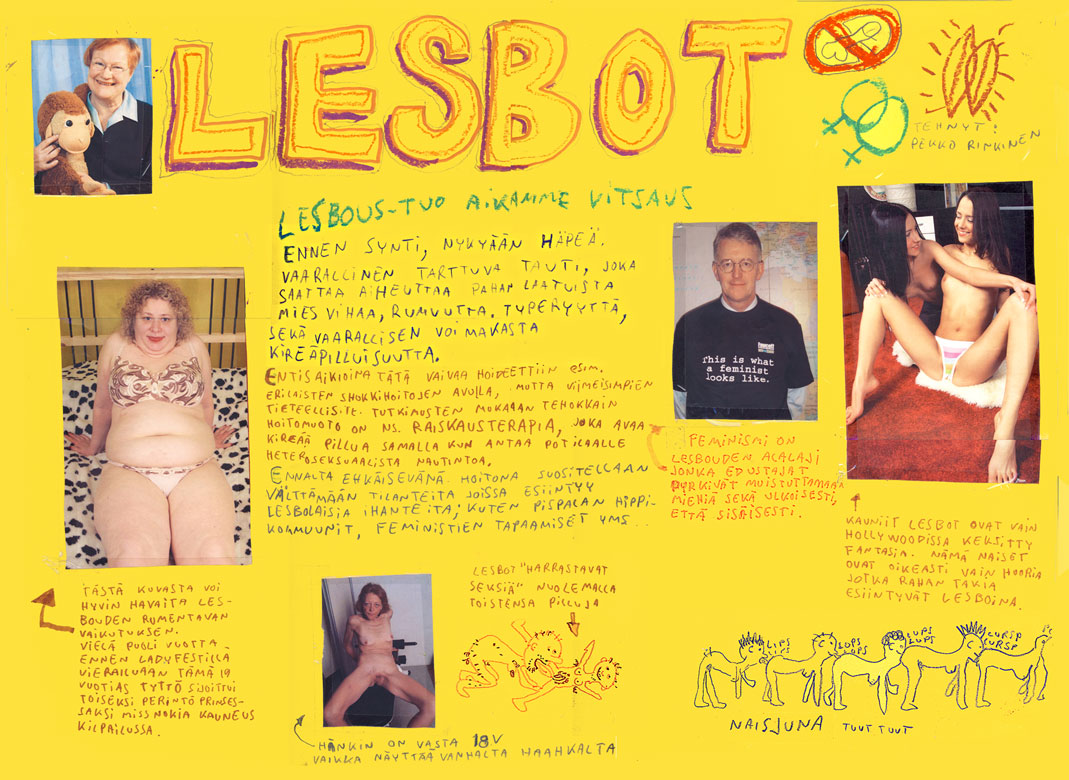 LESBOT
TEHNYT:
PEKKO RINKINEN
LESBOUS-TUO AIKAMME VITSAUS
ENNEN SYNTI, NYKYÄÄN HÄPEÄ.
VAARALLINEN TARTTUVA TAUTI, JOKA
SAATTAA AIHEUTTAA PAHAN LAATUISTA
MIES VIHAA, RUMUUTTA, TYPERYYTTÄ,
SEKÄ VAARALLISEN VOIMAKASTA
KIREÄPILLUISUUTTA.
ENTISAIKIOINA TÄTÄ VAIVAA HOIDETTIIN ESIM.
ERILAISTEN SHOKKIHOITOJEN AVULLA, MUTTA VIIMEISIMPIEN
TIETEELLISTE. TUTKIMUSTEN MUKAAN TEHOKKAIN
HOITOMUOTO ON NS. RAISKAUSTERAPIA, JOKA AVAA
KIREÄÄ PILLUA SAMALLA KUN ANTAA POTILAALLE
HETEROSEKSUAALISTA NAUTINTOA.
ENNALTA EHKÄISEVÄNÄ HOITONA SUOSITELLAAN
VÄLTTÄMÄÄN TILANTEITA JOISSA ESIINTYY
LESBOLAISIA IHANTEITA; KUTEN PISPALAN HIPPI-
KOMMUUNIT, FEMINISTIEN TAPAAMISET YMS...
This is what
a feminist
looks like.
FEMINISMI ON
LESBOUDEN ALALAJI
JONKA EDUSTAJAT
PYRKIVÄT MUISTUTTAMAAN
MIEHIÄ SEKÄ ULKOISESTI,
ETTÄ SISÄISESTI.
KAUNIIT LESBOT OVAT VAIN
HOLLYWOODISSA KEKSITTY
FANTASIA. NÄMÄ NAISET
OVAT OIKEASTI VAIN HUORIA
JOTKA RAHAN TAKIA
ESIINTYVÄT LESBOINA.
TÄSTÄ KUVASTA VOI
HYVIN HAVAITA LES-
BOUDEN RUMENTAVAN
VAIKUTUKSEN.
VIELÄ PUOLI VUOTTA
ENNEN LADYFESTILLA
VIERAILUAAN TÄMÄ 19
VUOTIAS TYTTÖ SIJOITTUI
TOISEKSI PERINTÖ PRINSES-
SAKSI MISS NOKIA KAUNEUS
KILPAILUSSA.
LESBOT "HARRASTAVAT
SEKSIÄ" NUOLEMALLA
TOISTENSA PILLUJA
HÄNKIN ON VASTA 18V
VAIKKA NÄYTTÄÄ VANHALTA HAAHKALTA
LIPS
LIPS
LOPS
LOPS
LUPS
LUPS
LURSP
LURSP
NAISJUNA TUUT TUUT